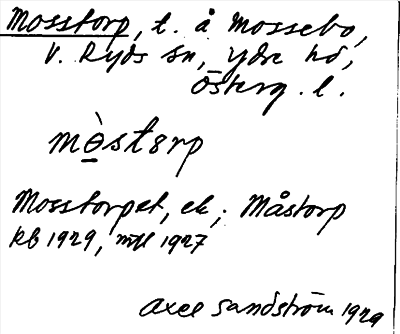 Mosstorp, t. å Mossebo,
V. Ryds sn, Ydre hd,
Österg. l.
mø̀storp
Mosstorpet, ek; Måstorp
kb 1929, mtl 1927
Axel Sandström 1929